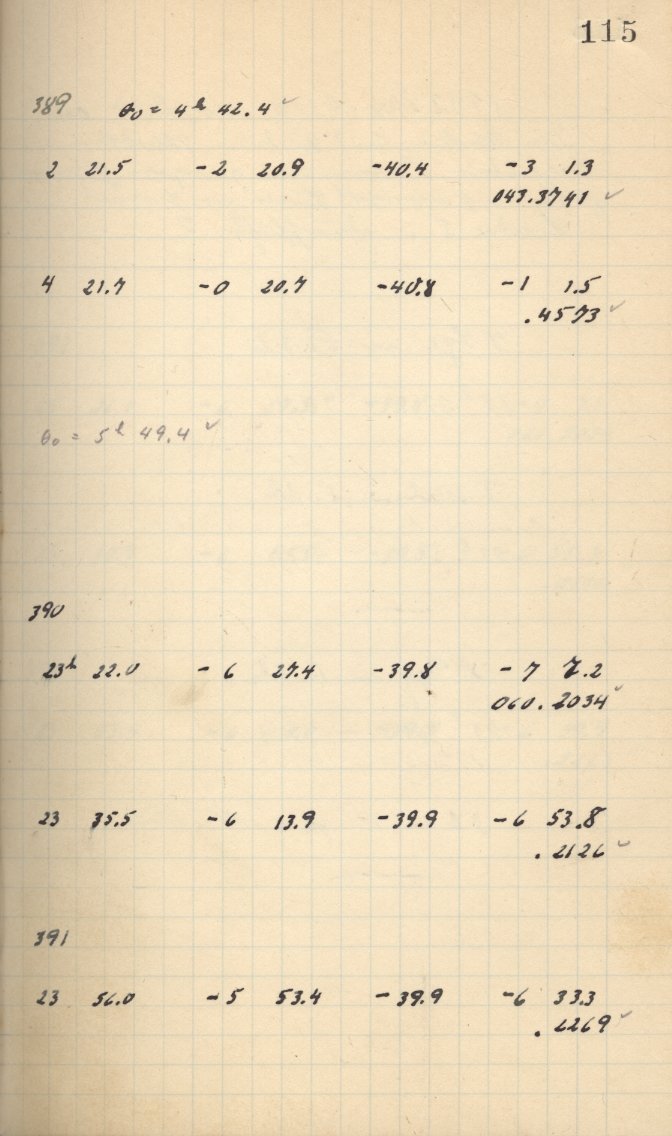 115
389 θ₀ = 4ʰ 42.4 ✓
2 21.5 -2 20.9 -40.4 -3 1.3
043.3741 ✓
4 21.7 -0 20.7 -40.8 -1 1.5
.4573 ✓
θ₀ = 5ʰ 49.4 ✓
390
23ʰ 22.0 -6 27.4 -39.8 -7 7.2
060.2034 ✓
23 35.5 -6 13.9 -39.9 -6 53.8
.2126 ✓
391
23 56.0 -5 53.4 -39.9 -6 33.3
.2269 ✓